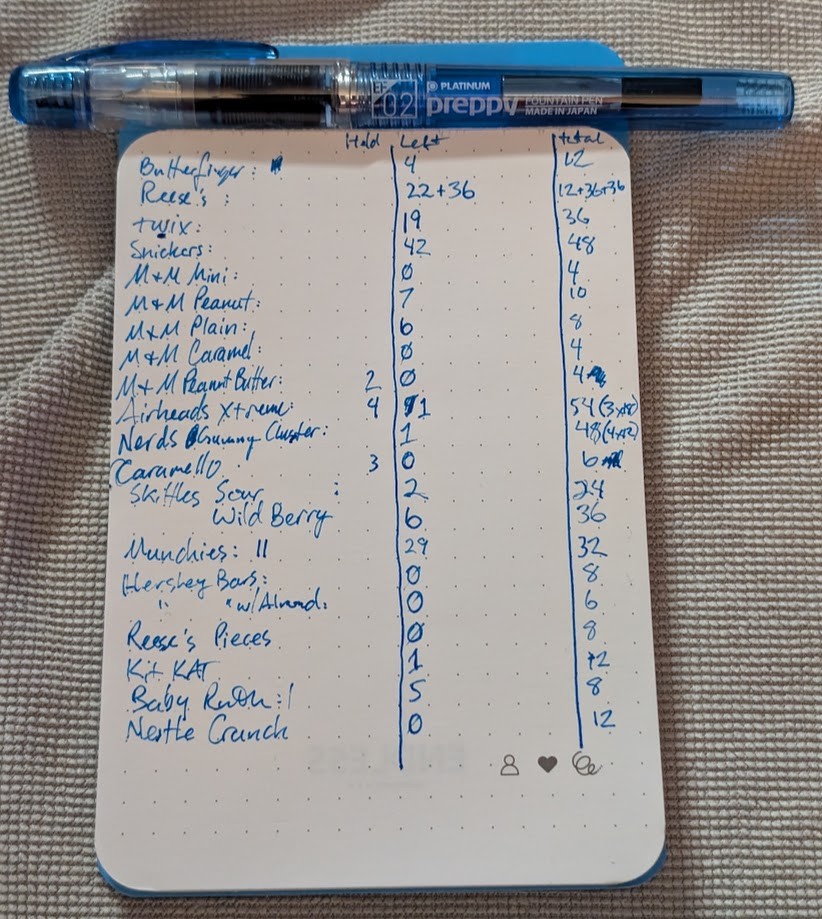 EF 02 PLATINUM preppy FOUNTAIN PEN MADE IN JAPAN
Held Left total
Butterfinger: 4 12
Reese's: 22+36 12+36+36
twix: 19 36
Snickers: 42 48
M+M Mini: 0 4
M+M Peanut: 7 10
M+M Plain: 6 8
M+M Caramel: 0 4
M+M Peanut Butter: 2 0 4
Airheads Xtreme: 4 1 54 (3x18)
Nerds Gummy Cluster: 1 48 (4x12)
Caramello 3 0 6
Skittles Sour : 2 24
Wild Berry 6 36
Munchies: 11 29 32
Hershey Bars: 0 8
" " w/Almond: 0 6
Reese's Pieces 0 8
Kit KAT 1 12
Baby Ruth: 1 5 8
Nestle Crunch 0 12
ENDLESS